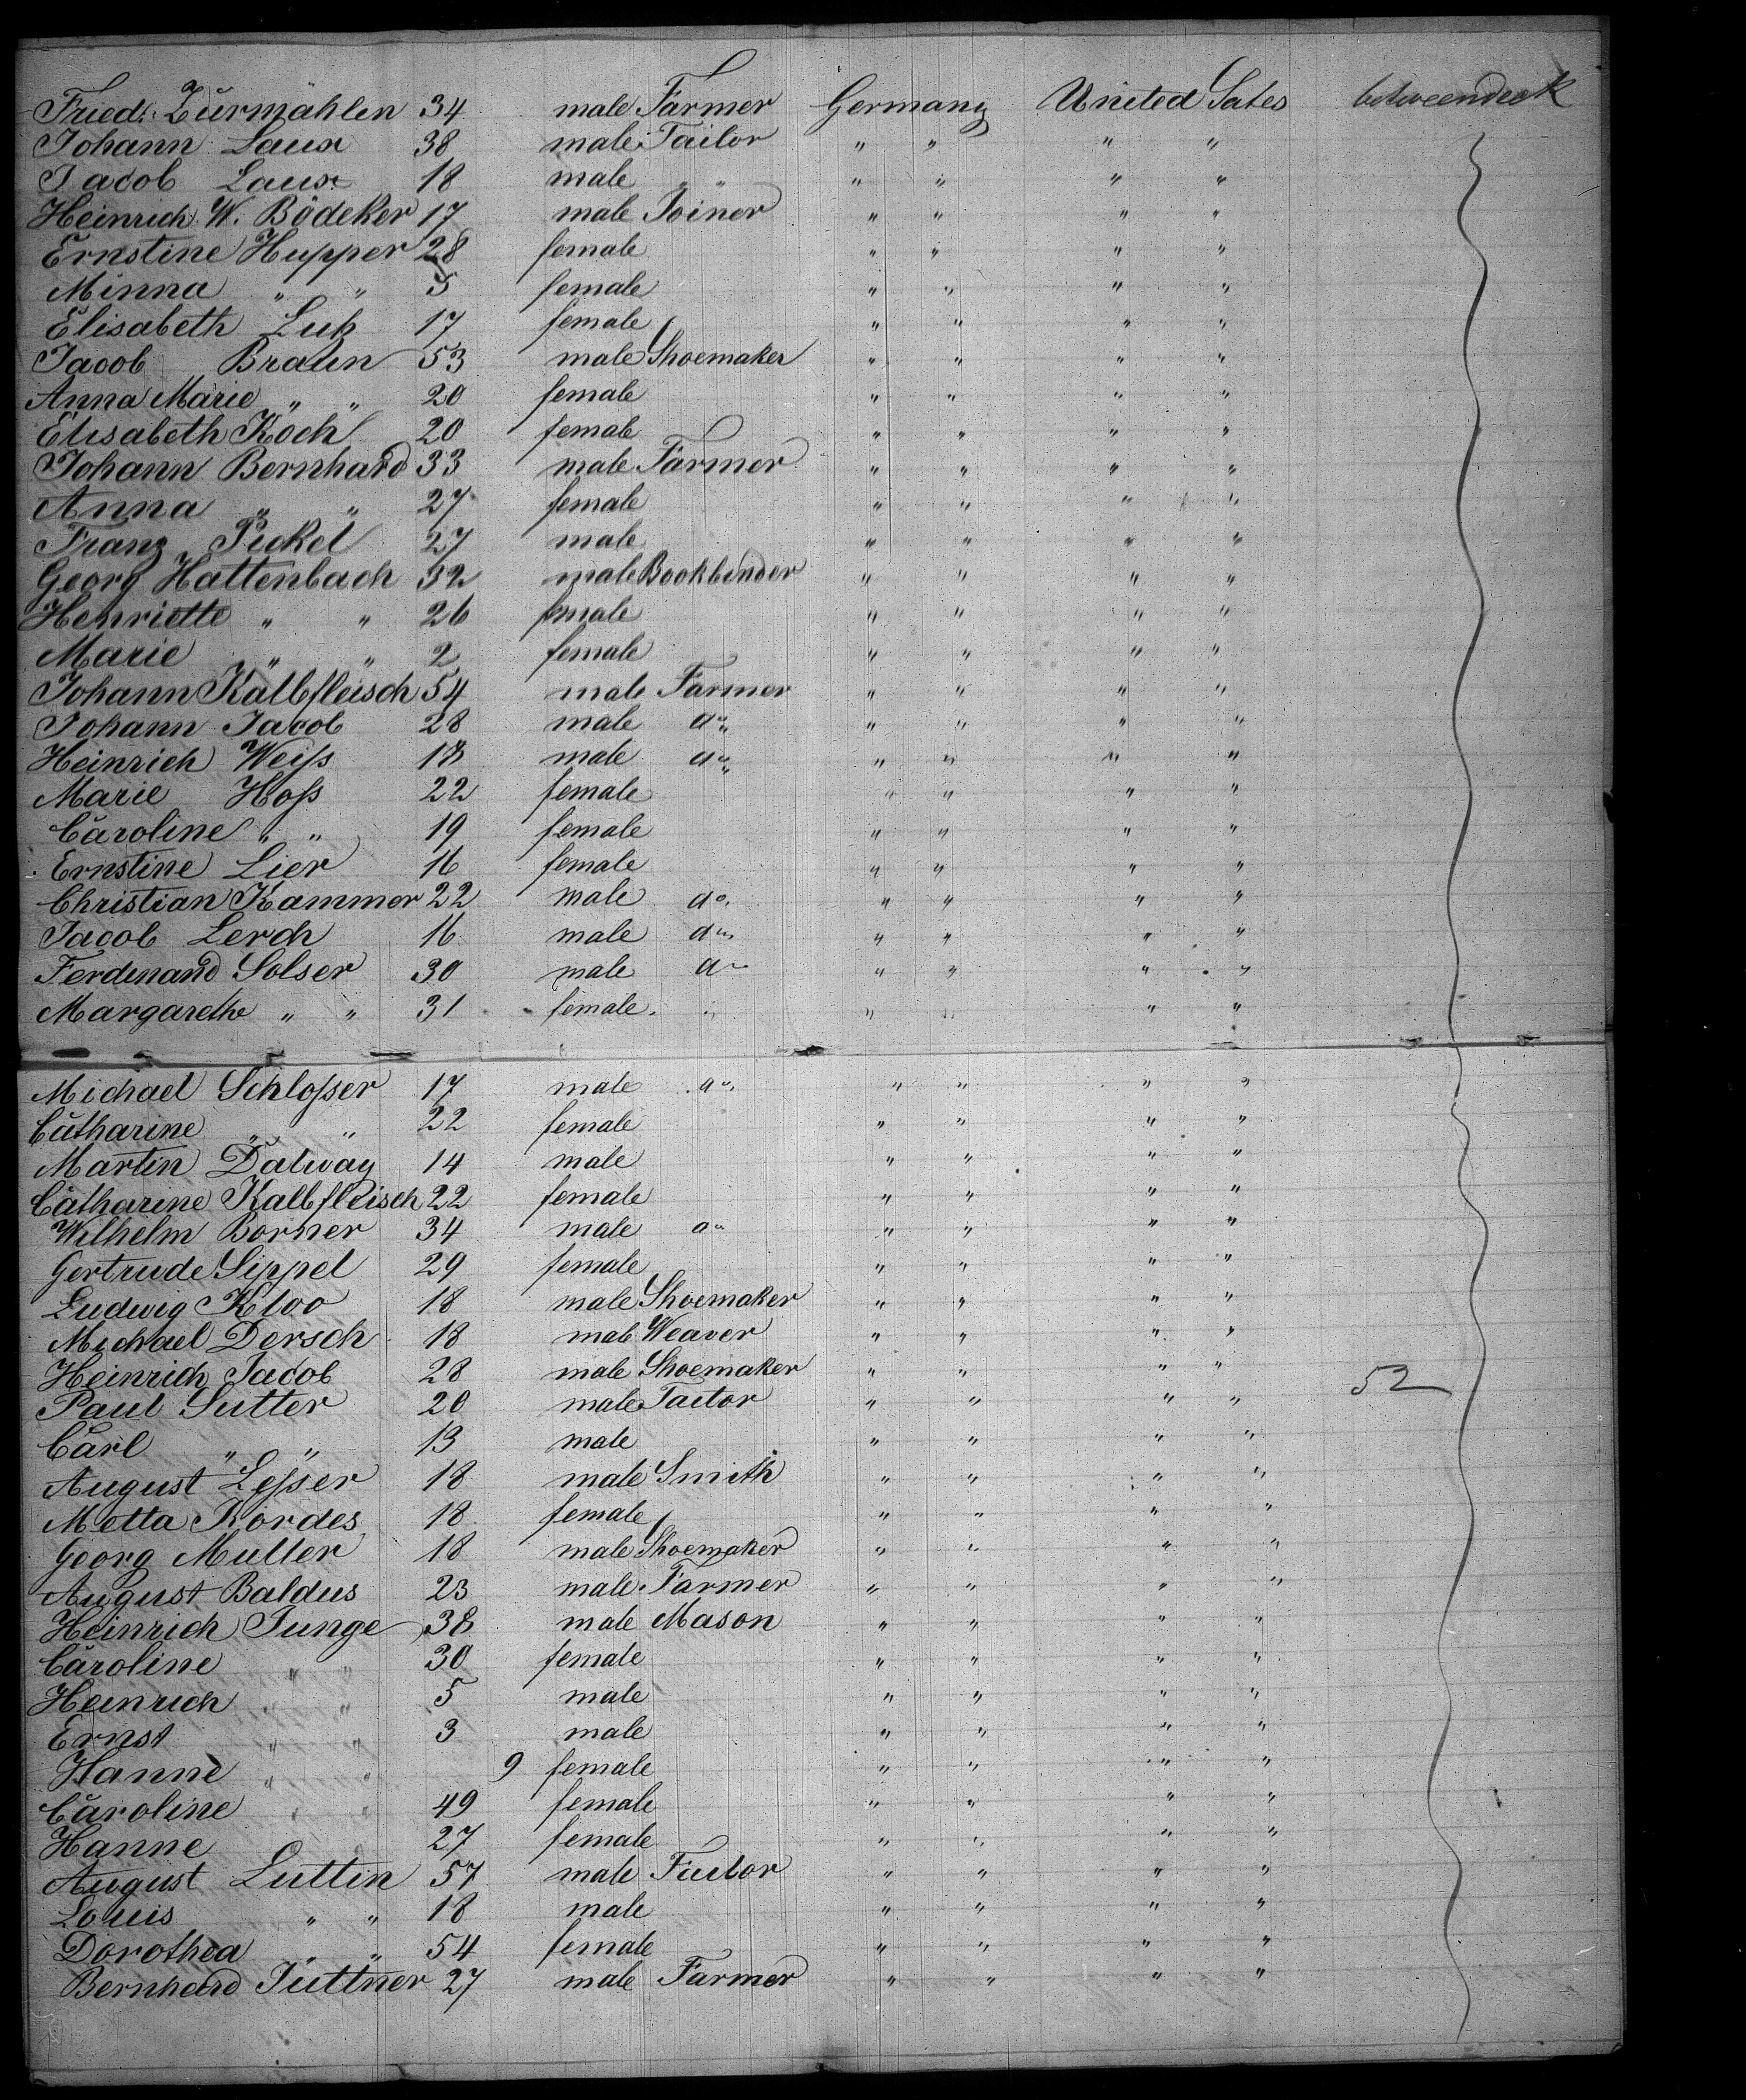 Fried. Zurmählen 34 male Farmer Germany United Sates betweendeck
Johann Laux 38 male Tailor " " " "
Jacob Laux 18 male " " " " " "
Heinrich W. Bödeker 17 male Joiner " " " "
Ernstine Hupper 28 female " " " "
Minna " " 5 female " " " "
Elisabeth Luß 17 female " " " "
Jacob Braun 53 male Shoemaker " " " "
Anna Marie " " 20 female " " " "
Elisabeth Koch 20 female " " " "
Johann Bernhard 33 male Farmer " " " "
Anna " " 27 female " " " "
Franz Pickel 27 male " " " "
Georg Hattenbach 32 male Bookbinder " " " "
Henriette " " 26 female " " " "
Marie " " 2 female " " " "
Johann Kalbfleisch 54 male Farmer " " " "
Johann Jacob 28 male do " " " "
Heinrich Weiß 18 male do " " " "
Marie Hoß 22 female " " " "
Caroline " " 19 female " " " "
Ernstine Lier 16 female " " " "
Christian Kammer 22 male do. " " " "
Jacob Lerch 16 male do " " " "
Ferdinand Solser 30 male do " " " "
Margarethe " " 31 female " " " " "
Michael Schloßer 17 male do " " " "
Catharine " " 22 female " " " "
Martin Dalway 14 male " " " "
Catharine Kalbfleisch 22 female " " " "
Wilhelm Borner 34 male do " " " "
Gertrude Sippel 29 female " " " "
Ludwig Kloo 18 male Shoemaker " " " "
Michael Dersch 18 male Weaver " " " "
Heinrich Jacob 28 male Shoemaker " " " " 52
Paul Sutter 20 male Tailor " " " "
Carl " " 13 male " " " "
August Leßer 18 male Smith " " " "
Metta Kordes 18 female " " " "
Georg Muller 18 male Shoemaker " " " "
August Baldus 23 male Farmer " " " "
Heinrich Junge 38 male Mason " " " "
Caroline " " 30 female " " " "
Heinrich " " 5 male " " " "
Ernst " " 3 male " " " "
Hanne " " 9 female " " " "
Caroline " " 49 female " " " "
Hanne 27 female " " " "
August Luttin 57 male Tailor " " " "
Louis " " 18 male " " " "
Dorothea " " 54 female " " " "
Bernhard Juttner 27 male Farmer " " " "